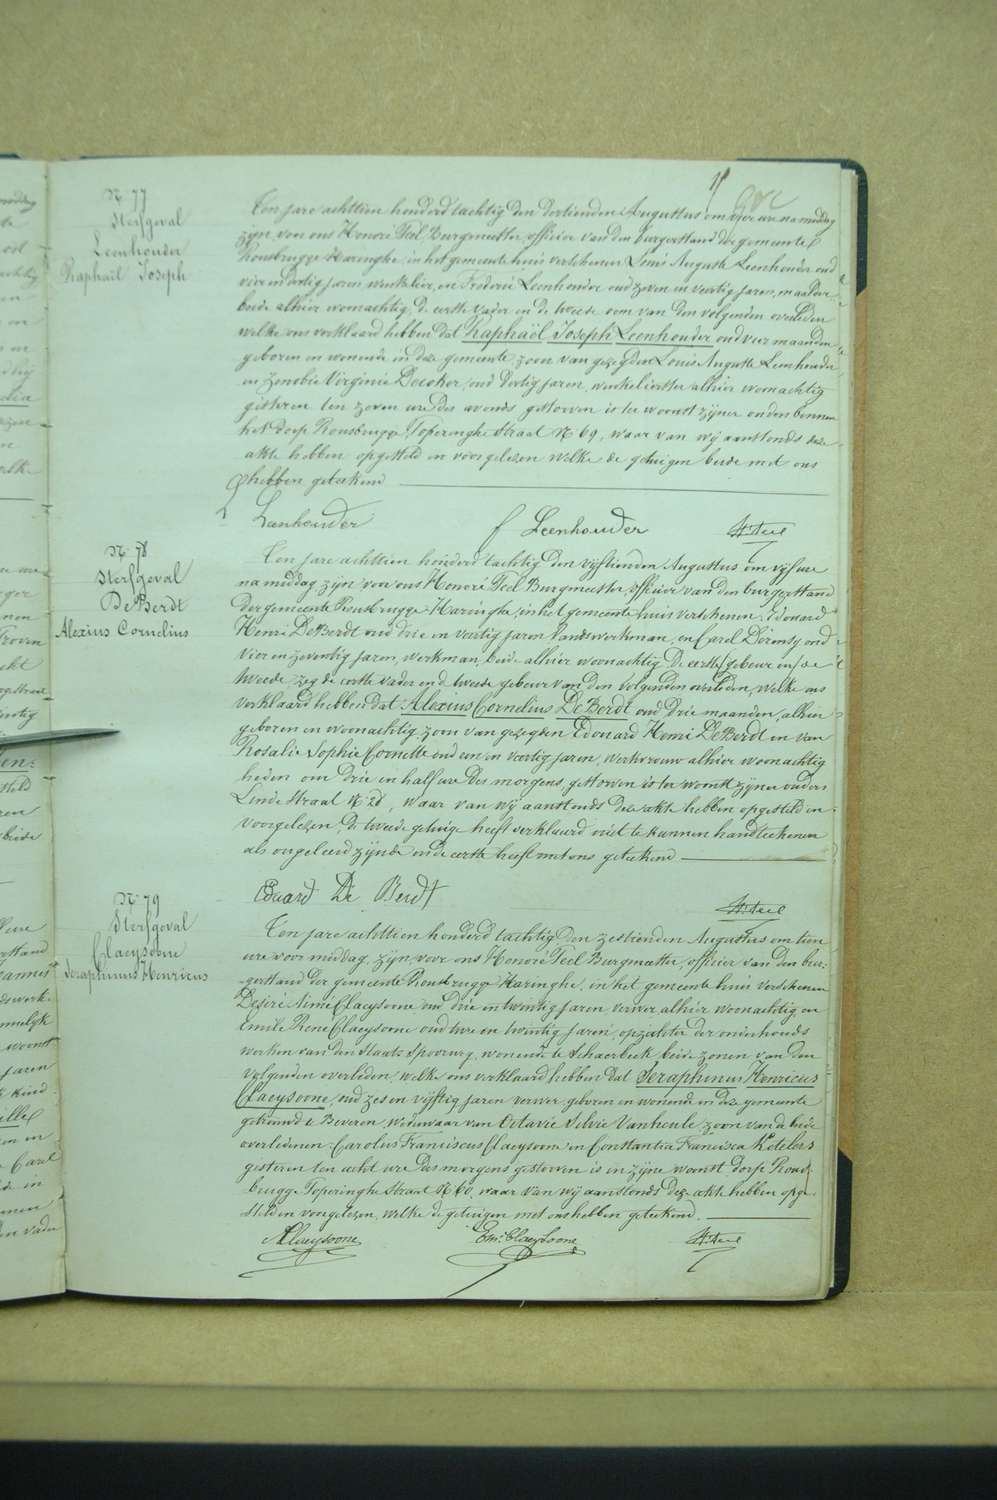 N. 77
Sterfgeval
Leenhouder
Raphaël Joseph
Ten jare achttien honderd tachtig den dertienden Augustus om vier ure na middag
zyn voor ons Honoré Teel Burgmeester, officier van den burgerstand der gemeente
Rousbrugge Haringhe, in het gemeente huis verschenen Louis Auguste Leenhouder oud
vier en dertig jaren winkelier, en Frederic Leenhouder oud zeven en veertig jaren, maalder
beide alhier woonachtig, de eerste vader en de tweede oom van den volgenden overleden
welke ons verklaard hebben dat Raphaël Joseph Leenhouder oud vier maanden
geboren en wonende in deze gemeente zoon van gezegden Louis Auguste Leenhouder
en Zenobie Virginie Decoker, oud dertig jaren, winkelierster alhier woonachtig
gisteren ten zeven ure des avonds gestorven is ter woonst zyner ouders binnen
het dorp Rousbrugge Poperinghe Straat N. 69, waar van wy aanstonds deze
akte hebben opgesteld en voorgelezen welke de getuigen beide met ons
hebben geteekend
Leenhouder f Leenhouder H. Teel
N. 78
Sterfgeval
De Berdt
Alexius Cornelius
Ten jare achttien honderd tachtig den vyftienden Augustus om vyf ure
na middag zyn voor ons Honoré Teel Burgmeester, officier van den burgerstand
der gemeente Rousbrugge Haringhe, in het gemeente huis verschenen, Edouard
Henri De Berdt oud drie en veertig jaren landswerkman, en Carel Dermsy oud
vier en zeventig jaren, werkman, beide alhier woonachtig De eerste gebeur en de
tweede zeg de eerste vader en d tweede gebeur van den volgenden overleden, welke ons
verklaard hebben dat Alexius Cornelius De Berdt oud drie maanden, alhier
geboren en woonachtig, zoon van gezegden Edouard Henri De Berdt en van
Rosalie Sophie Cornette oud een en veertig jaren, werkvrouw alhier woonachtig
heden om drie en half ure des morgens, gestorven is ter woonst zyner ouders
Linde Straat N. 28, waar van wy aanstonds deze akte hebben opgesteld en
voorgelezen, De tweede getuige heeft verklaard niet te kunnen handteekenen
als ongeleerd zynde en de eerste heeft met ons geteekend
Eduard De Berdt H. Teel
N. 79
Sterfgeval
Claeysoone
Seraphinus Henricus
Ten jare achttien honderd tachtig den zestienden Augustus om tien
ure voor middag, zyn, voor ons Honoré Teel Burgmeester, officier van den bur-
gerstand der gemeente Rousbrugge Haringhe, in het gemeente huis verschenen
Desiré Aimé Claeysoone oud drie en twintig jaren verwer alhier woonachtig, en
Emile René Claeysoone oud twee en twintig jaren, opzichter der onderhouds
werken van den Staats spoorweg, wonende te Schaerbeek beide zonen van den
volgenden overleden, welke ons verklaard hebben dat Seraphinus Henricus
Claeysoone, oud zes en vyftig jaren verwer, geboren en wonende in deze gemeente
getrouwd te Beveren, weduwaar van Octavie Silvie Vanheule, zoon van de beide
overledenen Carolus Franciscus Claeysoone en Constantia Francisca Ketelers
gisteren ten acht ure des morgens gestorven is in zyne woonst dorp Rous
brugge Poperinghe Straat N. 60, waar van wy aanstonds deze akte hebben opge-
steld en voorgelezen, welke de getuigen met ons hebben geteekend.
A Claeysoone Em. Claeysoone H. Teel